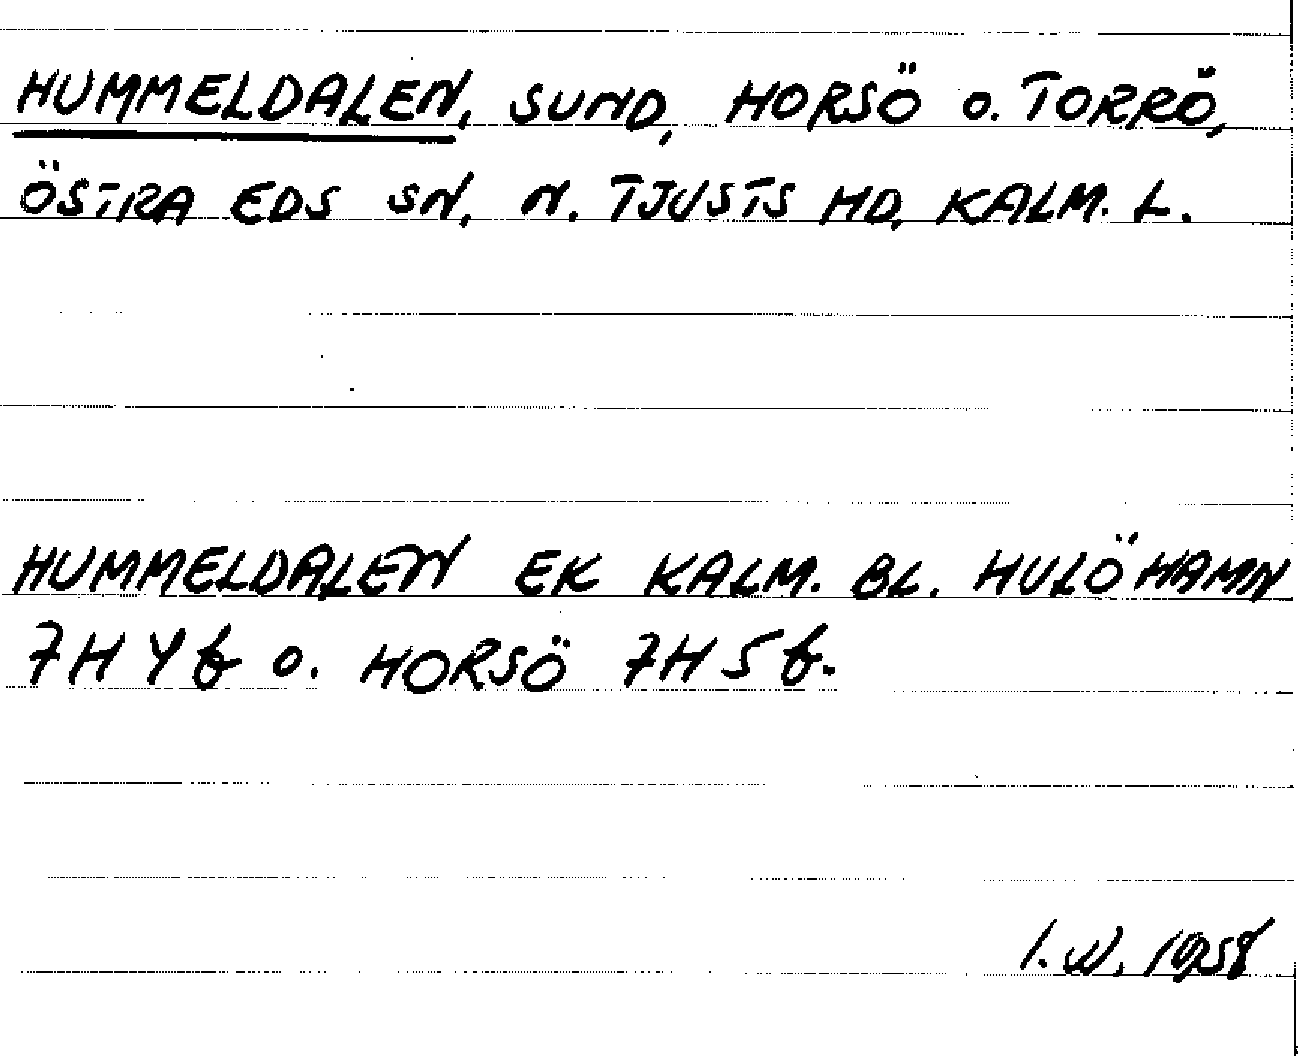 HUMMELDALEN, SUND, HORSÖ O. TORRÖ,
ÖSTRA EDS SN, N. TJUSTS HD, KALM. L.
HUMMELDALEN EK KALM. BL. HULÖHAMN
7H 4 f o. HORSÖ 7H 5 f.
I. W. 1958